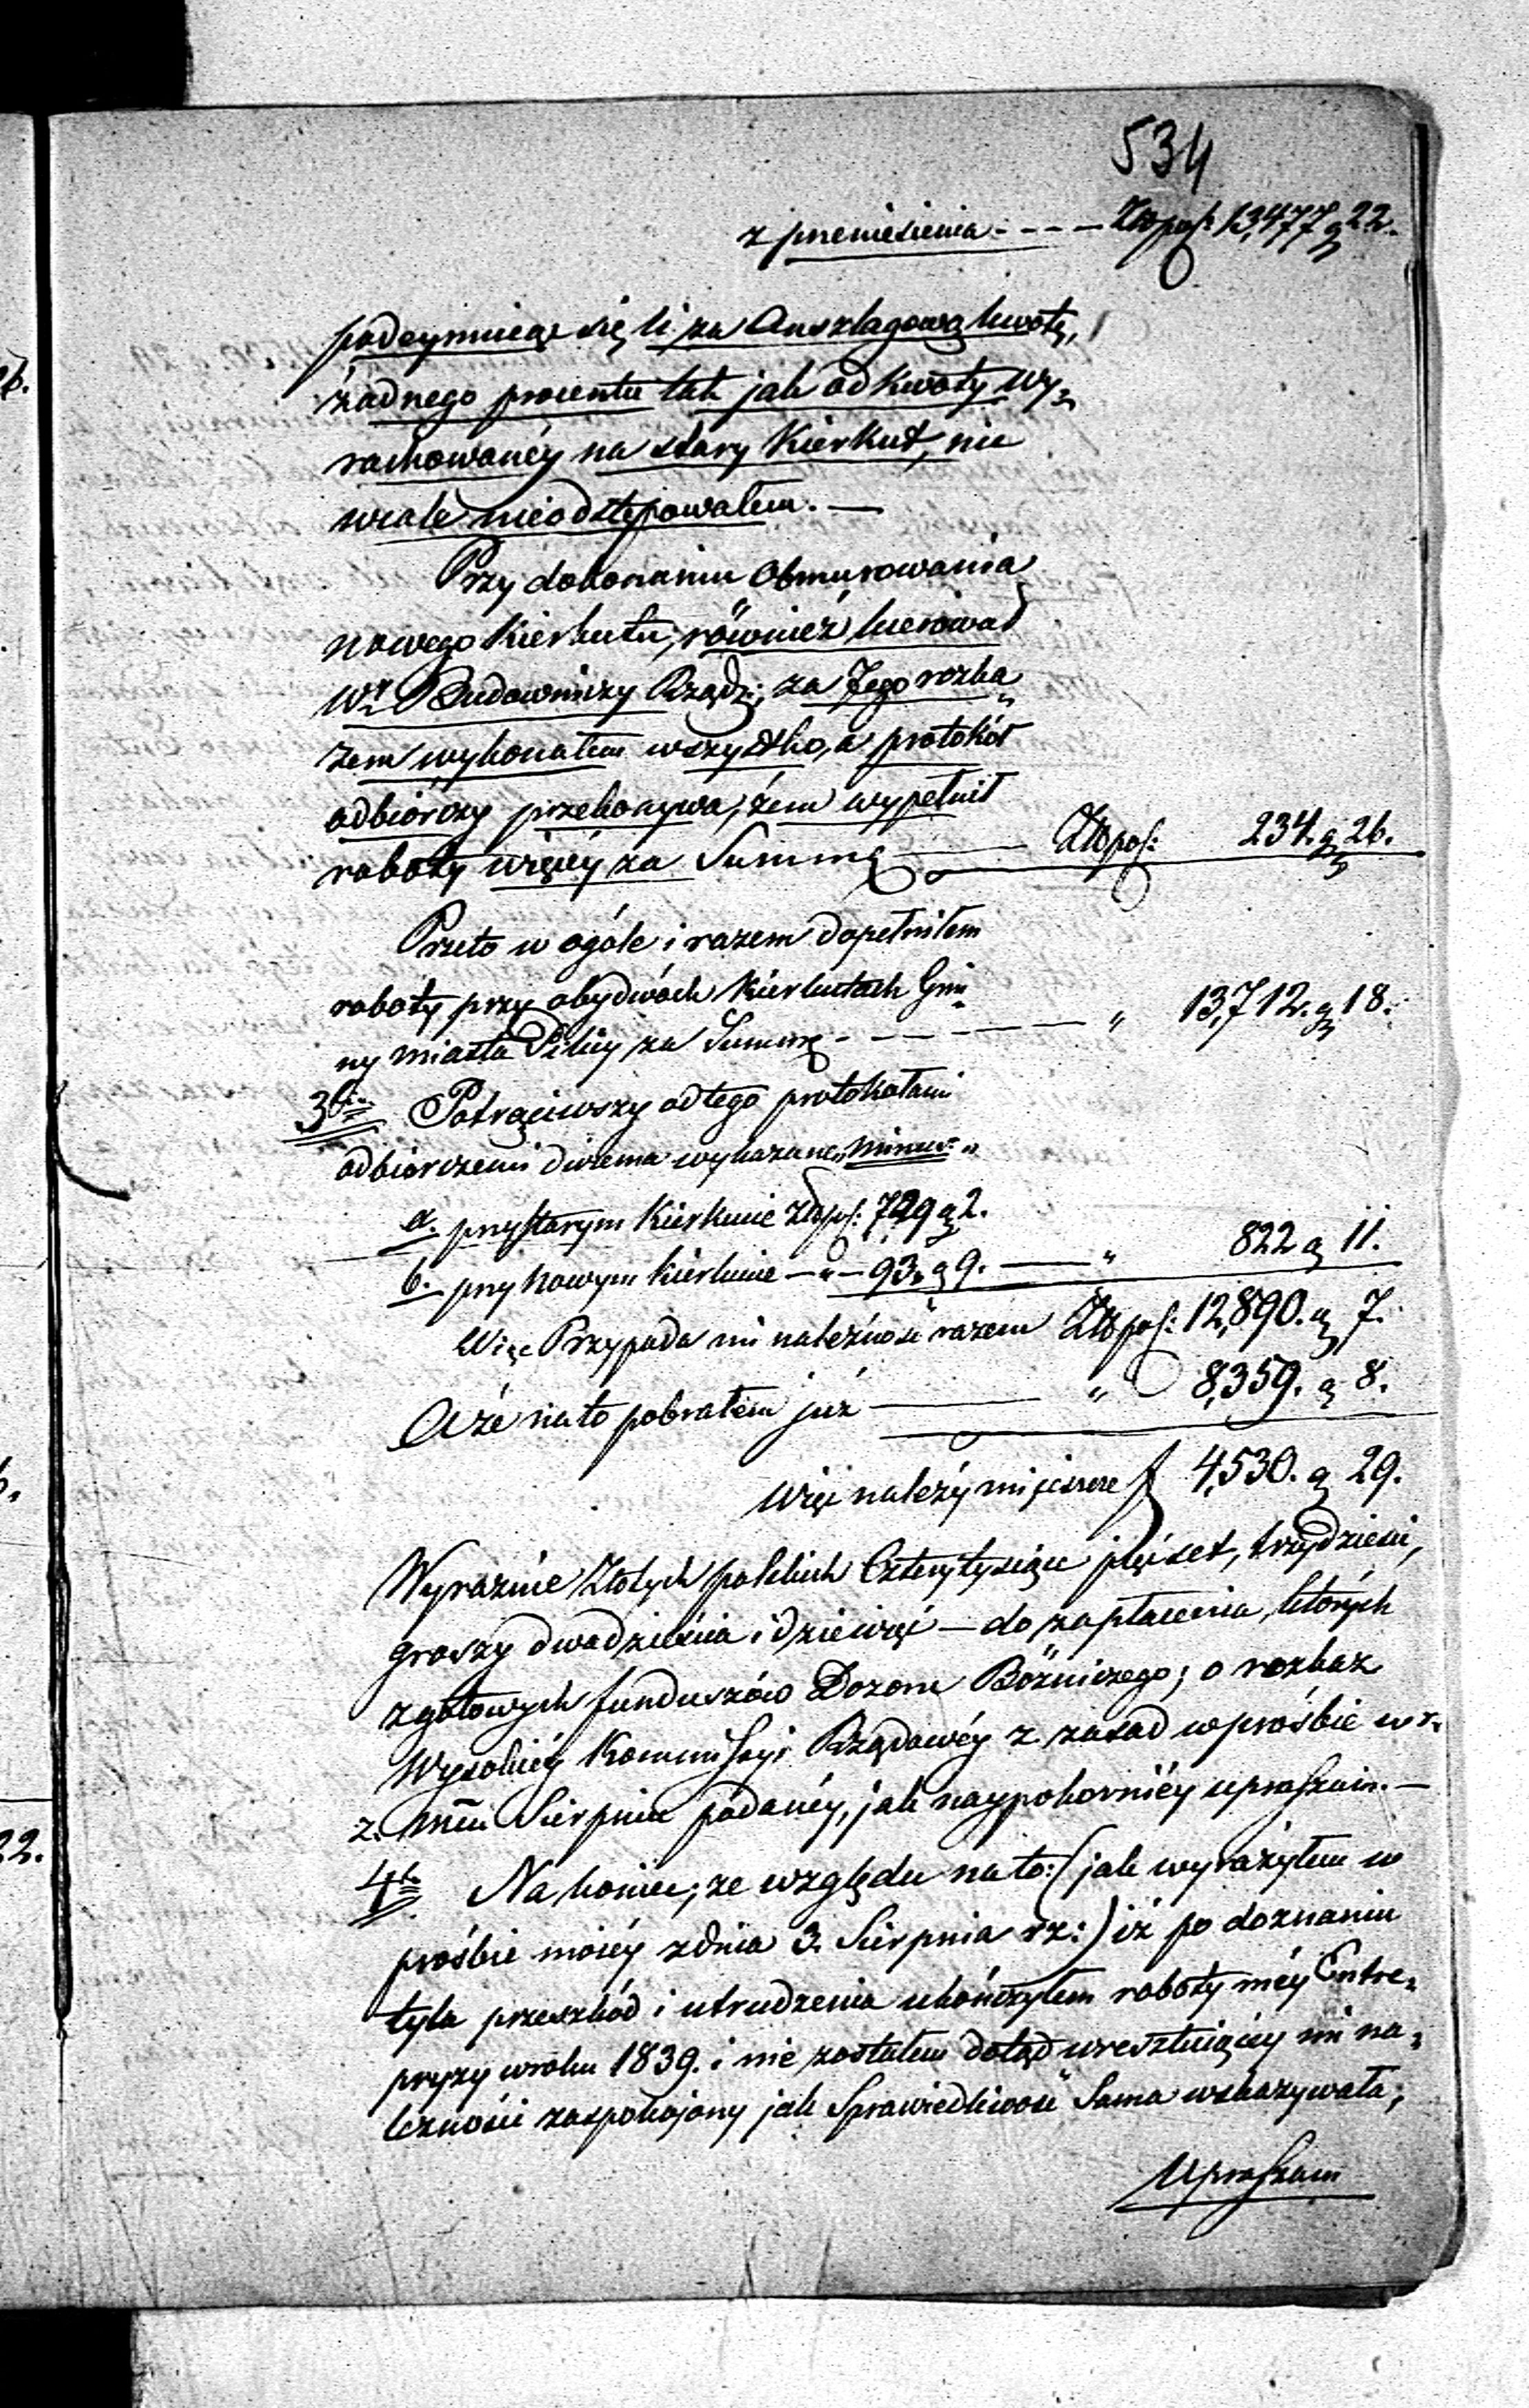 534
z przeniesienia - - - - Złp. pol: 13,477 g 22.
podeymując się li za Anszlagową kwotę,
żadnego procentu tak jak od kwoty wy=
rachowanéy na stary Kierkut, nie
wcale nieodstępowałem. —
Przy dokonaniu Obmurowania
nowego Kierkutu, również kierował
Wy Budowniczy Rządz:, za Jego rozka
zem wykonałem wszystko, a protokół
odbiórczy przekonywa, żem wypełnił
roboty więcéy za Summę — Złpol: 234. g 26.
Przeto w ogóle i razem dopełniłem
roboty przy obydwóch Kierkutach Gmi=
ny miasta Pilicy za Summę - - - — — — " 13,712. g 18.
3tio Potrąciwszy od tego protokołami
odbiorczemi dwiema wykazane „minus"
a. przy starym Kierkucie złpol: 729 g 2.
b. przy nowym Kierkucie — " — 93. g 9. — " 822 g 11.
Więc Przypada mi należność razem Złpol: 12,890. g 7.
A że na to pobrałem już — " 8,359. g 8.
Więc należy mi jeszcze f 4,530. g 29.
Wyraźnie Złotych polskich Czterytysiące pięćset, trzydzieści,
groszy dwadzieścia i dziewięć — do zapłacenia których
z gotowych funduszów Dozoru Bóżniczego; o rozkaz
Wysokiéy Kommissyi Rządowéy z zasad w prośbie w r.
z. mcu Sierpniu podanéy, jak naypokorniéy upraszam. —
4to Na koniec, ze względu na to: (jak wyraziłem w
prośbie moiéy z dnia 3. Sierpnia rz:) iż po doznaniu
tyla przeszkód i utrudzenia ukończyłem roboty méy Entre=
pryzy w roku 1839. i nie zostałem dotąd w resztuiącéy mi na=
leżności zaspokojony jak Sprawiedliwość Sama wskazywała;
Upraszam